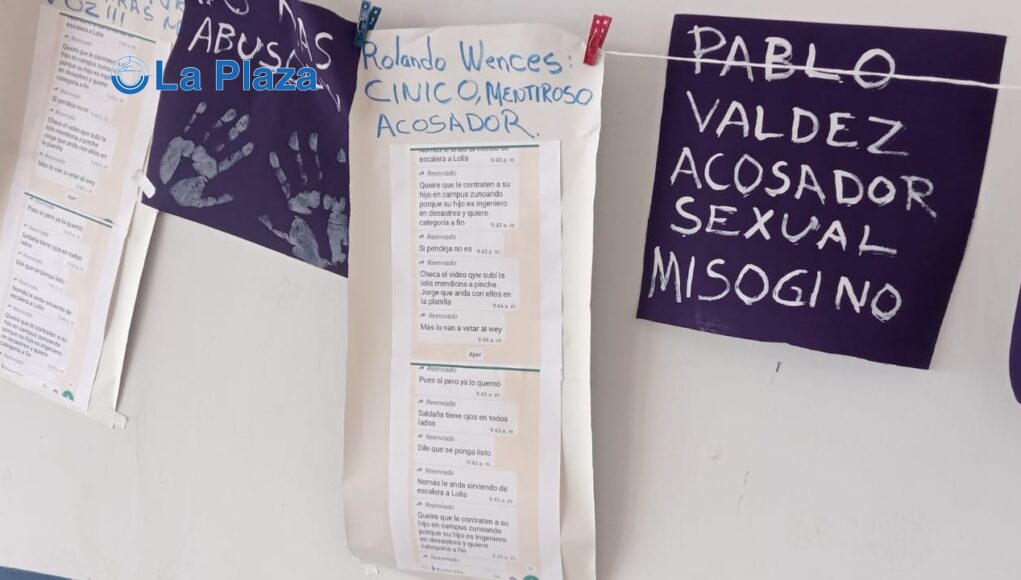 VOZ!!!
escalera a Lolis
9:43 a. m.
Reenviado
Queire que le contraten a su
hijo en campus zunoando
porque su hijo es ingeniero
en desastres y quiere
categoría a fin
Reenviado
Si pendeja no es
Reenviado
Checa el video qyw subí la
lolis mendiona a pinche
Jorge que anda con ellos en
la planilla
Reenviado
Más lo van a vetar al wey
Ayer
Pues si pero ya lo quemó
Reenviado
Saldaña tiene ojos en todos
lados
Reenviado
Dile que se ponga listo
Reenviado
Nomás le anda sirviendo de
escalera a Lolis
Reenviado
Queire que le contraten a su
hijo en campus zunoando
porque su hijo es ingeniero
en desastres y quiere
categoría a fin
Reenviado
La Plaza
Rolando Wences:
CINICO, MENTIROSO
ACOSADOR.
Nomás le anda sirviendo de
escalera a Lolis
9:43 a. m.
Reenviado
Queire que le contraten a su
hijo en campus zunoando
porque su hijo es ingeniero
en desastres y quiere
categoría a fin
9:43 a. m.
Reenviado
Si pendeja no es
9:43 a. m.
Reenviado
Checa el video qyw subí la
lolis mendiona a pinche
Jorge que anda con ellos en
la planilla
9:44 a. m.
Reenviado
Más lo van a vetar al wey
9:44 a. m.
Ayer
Reenviado
Pues si pero ya lo quemó
9:43 a. m.
Reenviado
Saldaña tiene ojos en todos
lados
9:43 a. m.
Reenviado
Dile que se ponga listo
9:43 a. m.
Reenviado
Nomás le anda sirviendo de
escalera a Lolis
9:43 a. m.
Reenviado
Queire que le contraten a su
hijo en campus zunoando
porque su hijo es ingeniero
en desastres y quiere
categoría a fin
9:43 a. m.
Reenviado
PABLO
VALDEZ
ACOSADOR
SEXUAL
MISOGINO